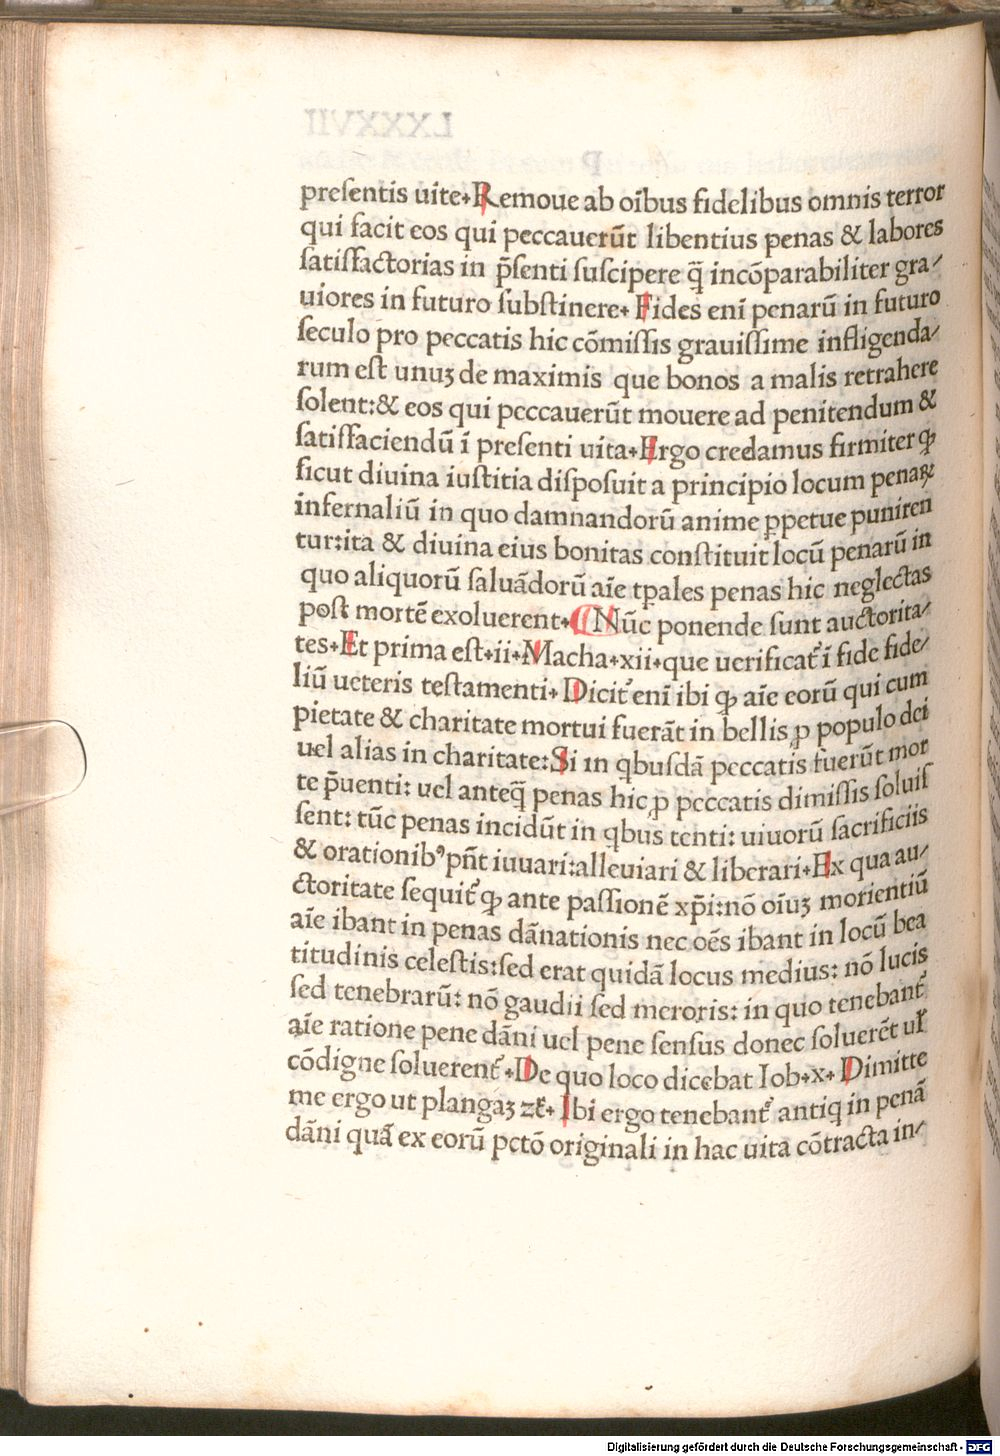 presentis uite. Remoue ab oībus fidelibus omnis terror
qui facit eos qui peccauerūt libentius penas & labores
satisfactorias in p̄senti suscipere q̄ incōparabiliter gra⸗
uiores in futuro substinere. Fides enī penarū in futuro
seculo pro peccatis hic cōmissis grauissime infligenda⸗
rum est unuꝫ de maximis que bonos a malis retrahere
solent:& eos qui peccauerūt mouere ad penitendum &
satisfaciendū ī presenti uita. Ergo credamus firmiter ꝙ
sicut diuina iustitia disposuit a principio locum penaꝝ
infernaliū in quo damnandorū anime ꝑpetue puniren
tur:ita & diuina eius bonitas constituit locū penarū in
quo aliquorū saluādorū aīe tpales penas hic neglectas
post mortē exoluerent. ¶ Nūc ponende sunt auctorita⸗
tes. Et prima est.ii.Macha.xii.que uerificat᷑ ī fide fide⸗
liū ueteris testamenti. Dicit᷑ enī ibi ꝙ aīe eorū qui cum
pietate & charitate mortui fuerāt in bellis ꝓ populo dei
uel alias in charitate:Si in qbusdā peccatis fuerūt mor
te p̄uenti: uel anteq̄ penas hic ꝓ peccatis dimissis soluis
sent: tūc penas incidūt in qbus tenti: uiuorū sacrificiis
& orationibꝰ pn̄t iuuari:alleuiari & liberari. Ex qua au⸗
ctoritate sequit᷑ ꝙ ante passionē xp̄i:nō oīuꝫ morientiū
aīe ibant in penas dānationis nec oēs ibant in locū bea
titudinis celestis:sed erat quidā locus medius: nō lucis
sed tenebrarū: nō gaudii sed meroris: in quo tenebant᷑
aīe ratione pene dāni uel pene sensus donec soluerēt uł
cōdigne soluerent᷑. De quo loco dicebat Iob.x. Dimitte
me ergo ut plangaꝫ zc̄. Ibi ergo tenebant᷑ antiq in penā
dāni quā ex eorū pctō originali in hac uita cōtracta in⸗
Digitalisierung gefördert durch die Deutsche Forschungsgemeinschaft - DFG